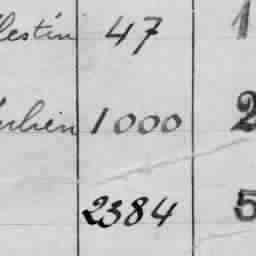 lestin 47 1
1000 2
2384 5